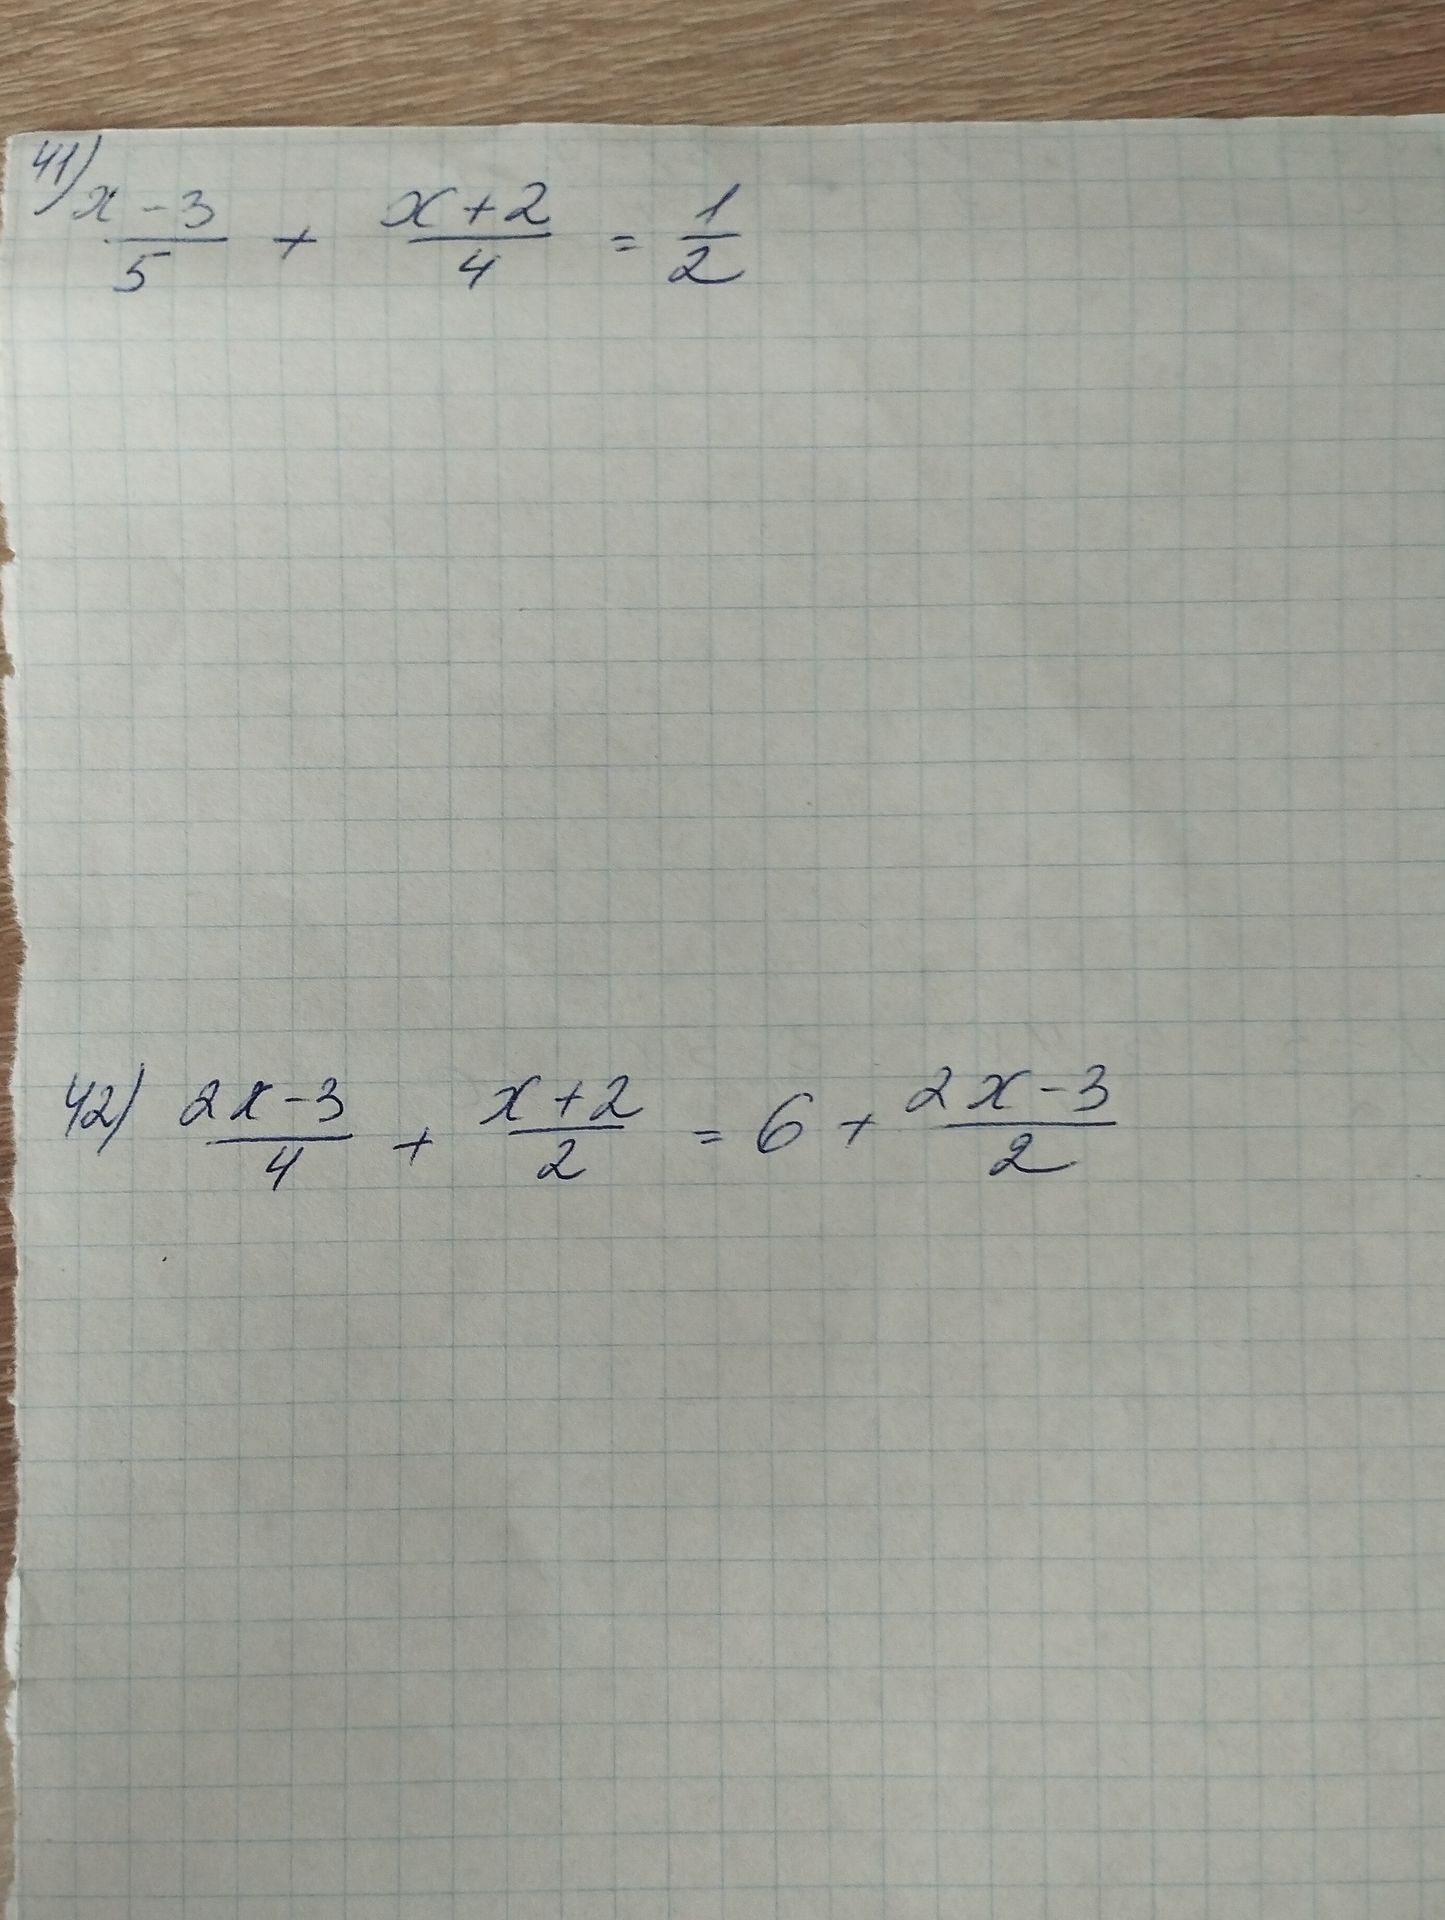 41) x-3/5 + x+2/4 = 1/2
42) 2x-3/4 + x+2/2 = 6 + 2x-3/2